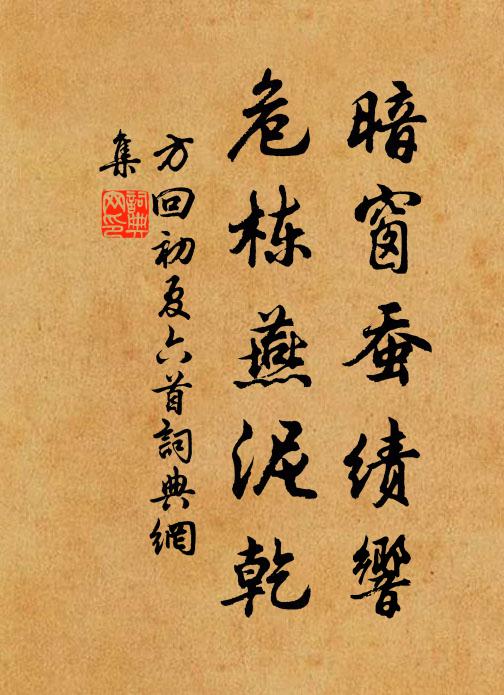 暗窗蚕绩響
危栋燕泥乾
方回初夏六首詞典網
集
詞典网印